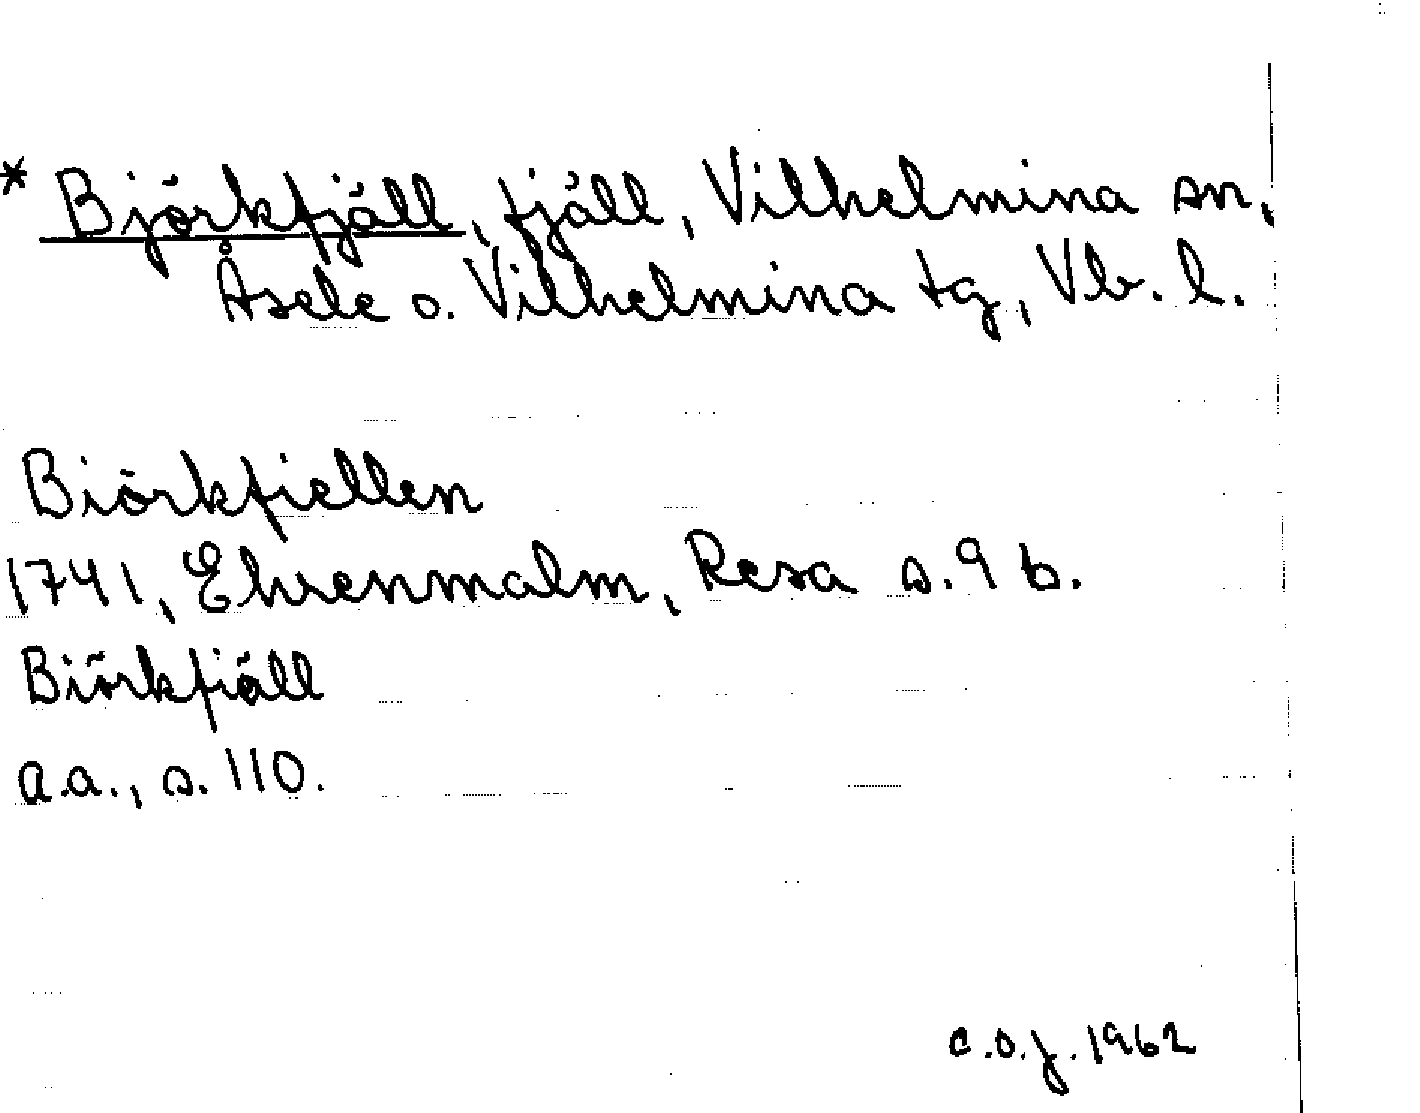 * Björkfjäll, fjäll, Vilhelmina sn,
Åsele o. Vilhelmina tg, Vb. l.
Biörkfiellen
1741, Ehrenmalm, Resa s. 9 b.
Biörkfiäll
a.a., s. 110.
C.O.J. 1962